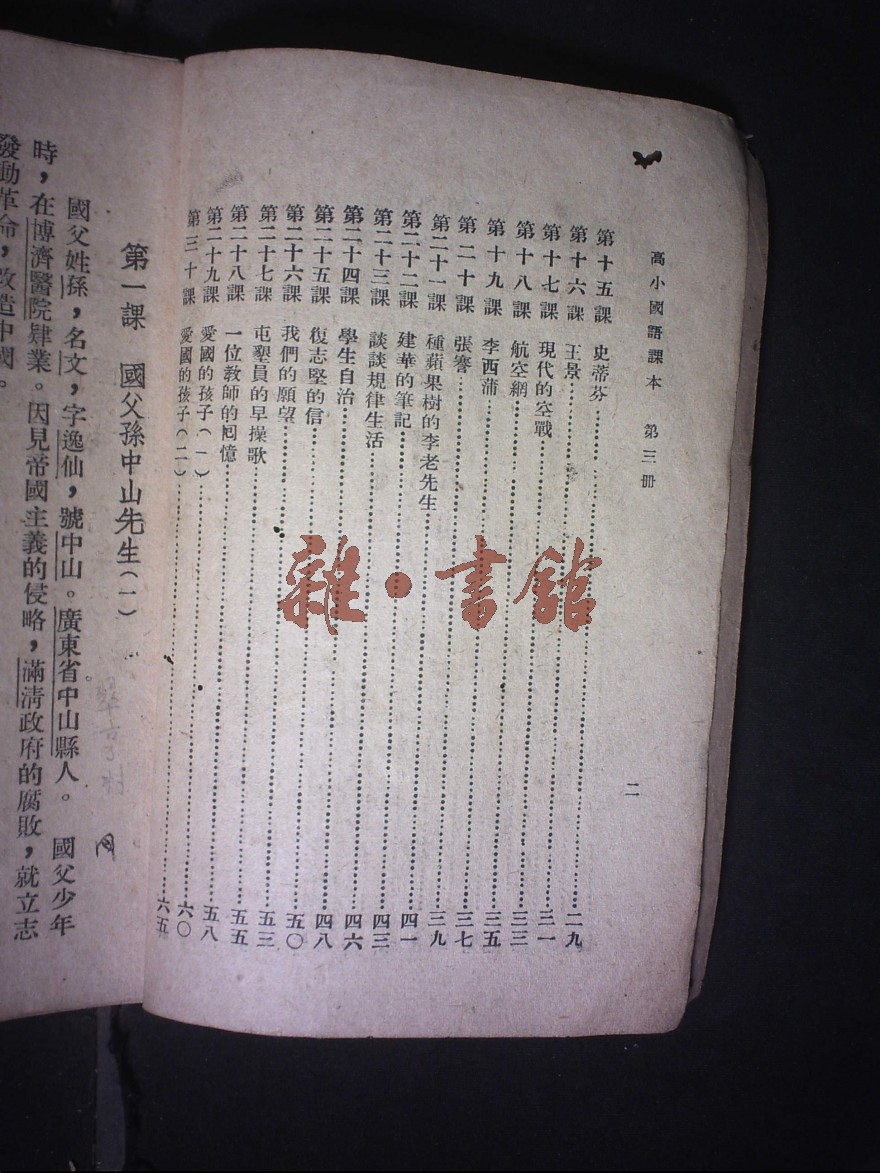 高小國語課本　第三册
二
第十五課　史蒂芬……二九
第十六課　王景……三一
第十七課　現代的空戰……三三
第十八課　航空網……三五
第十九課　李西蒲……三七
第二十課　張謇……三九
第二十一課　種蘋果樹的李老先生……四一
第二十二課　建華的筆記……四三
第二十三課　談談規律生活……四六
第二十四課　學生自治……四八
第二十五課　復志堅的信……五〇
第二十六課　我們的願望……五三
第二十七課　屯墾員的早操歌……五五
第二十八課　一位教師的回憶……五八
第二十九課　愛國的孩子(一)……六〇
第三十課　愛國的孩子(二)……六五
第一課　國父孫中山先生(一)
國父姓孫，名文，字逸仙，號中山。廣東省中山縣人。　國父少年
時，在博濟醫院肄業。因見帝國主義的侵略，滿清政府的腐敗，就立志
發動革命，改造中國。
雜·書館